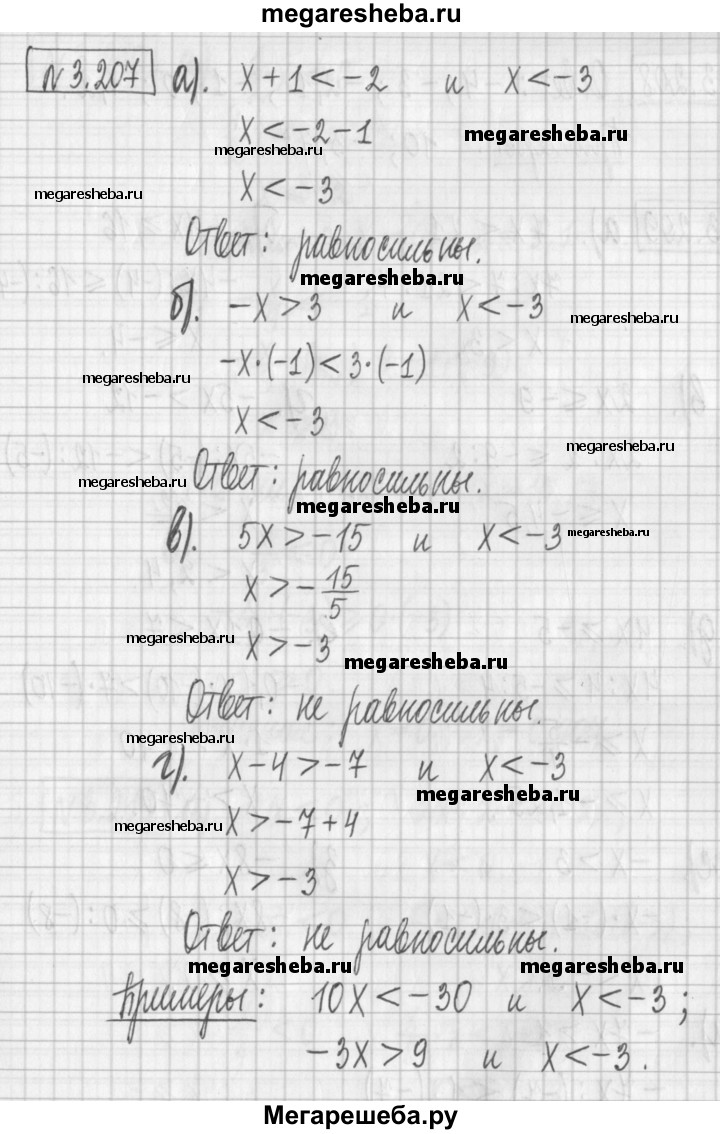 megaresheba.ru
№ 3.207 а). x + 1 < -2 и x < -3
x < -2 - 1 megaresheba.ru
megaresheba.ru
megaresheba.ru x < -3
Ответ: равносильны.
megaresheba.ru
б). -x > 3 и x < -3 megaresheba.ru
-x·(-1) < 3·(-1)
megaresheba.ru
x < -3
megaresheba.ru
megaresheba.ru Ответ: равносильны.
megaresheba.ru
в). 5x > -15 и x < -3 megaresheba.ru
x > -15/5
megaresheba.ru x > -3
megaresheba.ru
Ответ: не равносильны.
megaresheba.ru
г). x - 4 > -7 и x < -3
megaresheba.ru
megaresheba.ru x > -7 + 4
x > -3
Ответ: не равносильны.
megaresheba.ru megaresheba.ru
Примеры: 10x < -30 и x < -3;
-3x > 9 и x < -3.
Мегарешеба.ру